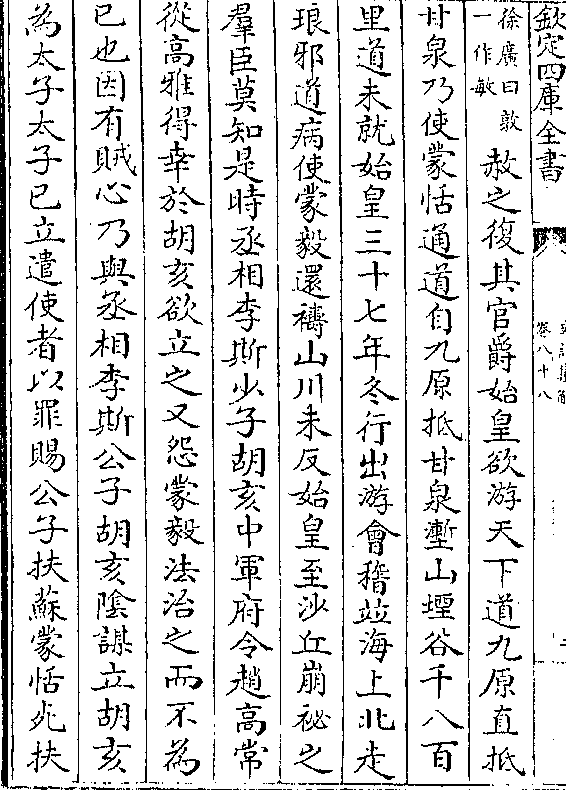 欽定四庫全書
卷八十八
徐廣曰敦
一作敏
赦之復其官爵始皇欲游天下道九原直抵
甘泉乃使蒙恬通道自九原抵甘泉塹山堙谷千八百
里道未就始皇三十七年冬行出游會稽竝海上北走
琅邪道病使蒙毅還禱山川未反始皇至沙丘崩祕之
羣臣莫知是時丞相李斯少子胡亥中軍府令趙高常
從高雅得幸於胡亥欲立之又怨蒙毅法治之而不為
已也因有賊心乃與丞相李斯公子胡亥陰謀立胡亥
為太子太子已立遣使者以罪賜公子扶蘇蒙恬死扶